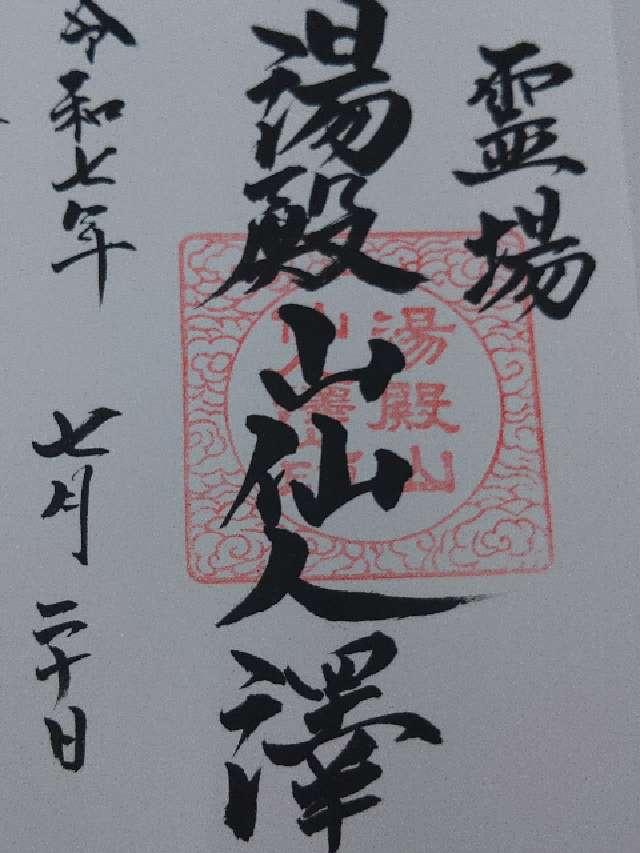 霊場
湯殿山仙人澤
令和七年 七月 二十日
湯殿山